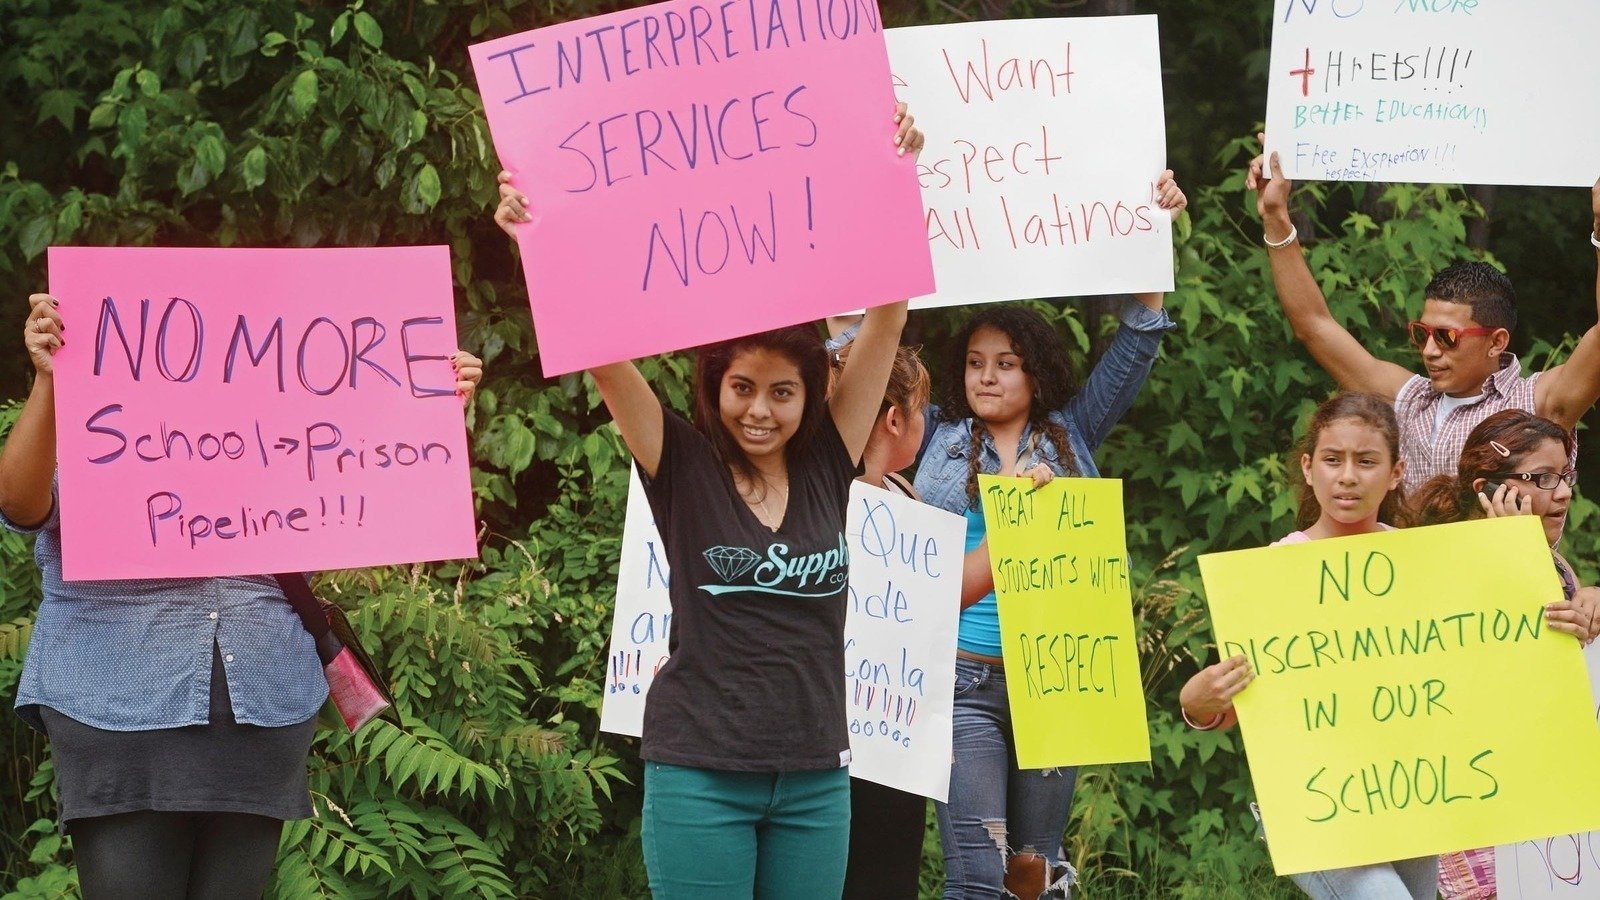 NO MORE
School→Prison
Pipeline!!!
INTERPRETATION
SERVICES
NOW!
Want
espect
All latinos!
NO More
tHrEts!!!!
Better EDUCAtiON!!
Free EXSPretiON!!!
respect!
Supply
CO.
Que
de
Con la
TREAT ALL
STUDENTS WITH
RESPECT
NO
DISCRIMINATION
IN OUR
SCHOOLS